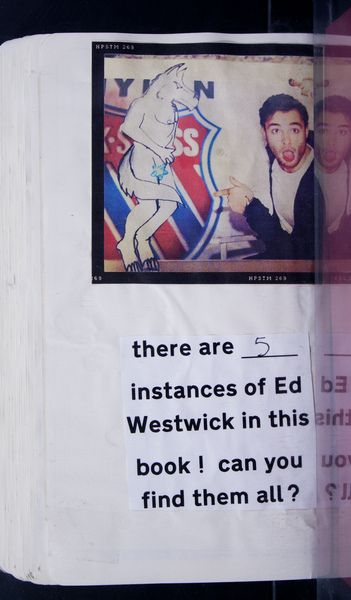 HPSTM 269
NYLON
SS
69
HPSTM 269
there are 5
instances of Ed
Westwick in this
book! can you
find them all?